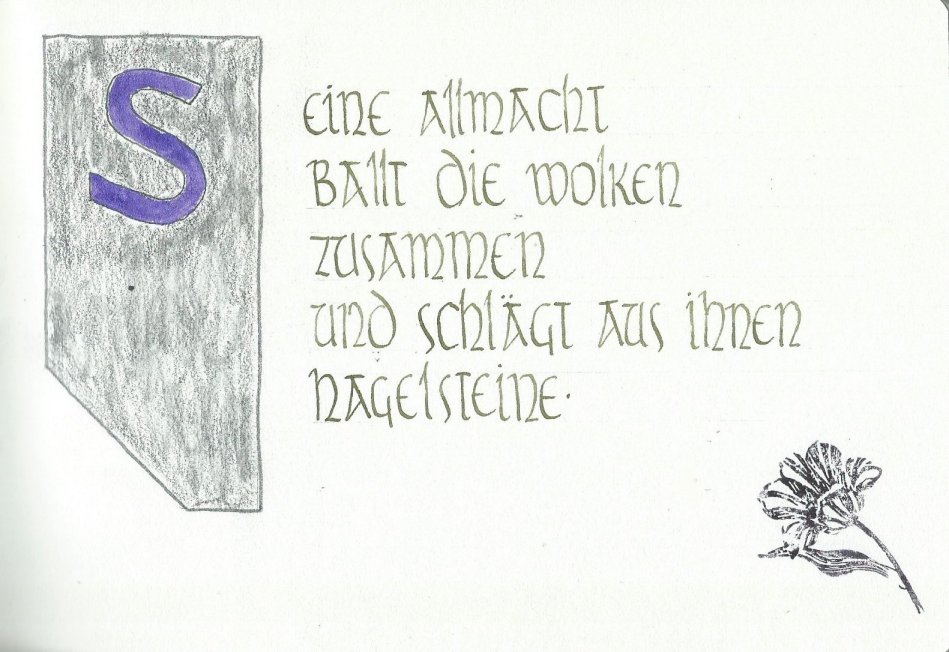 Seine Allmacht
ballt die Wolken
zusammen
und schlägt aus ihnen
Hagelsteine.